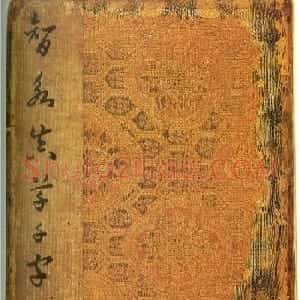 智永真草千字